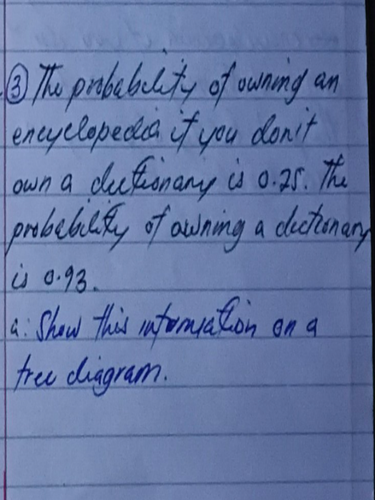 ③ The probability of owning an
encyclopedia if you don't
own a dictionary is 0.25. The
probability of owning a dictionary
is 0.93.
a: Show this information on a
tree diagram.